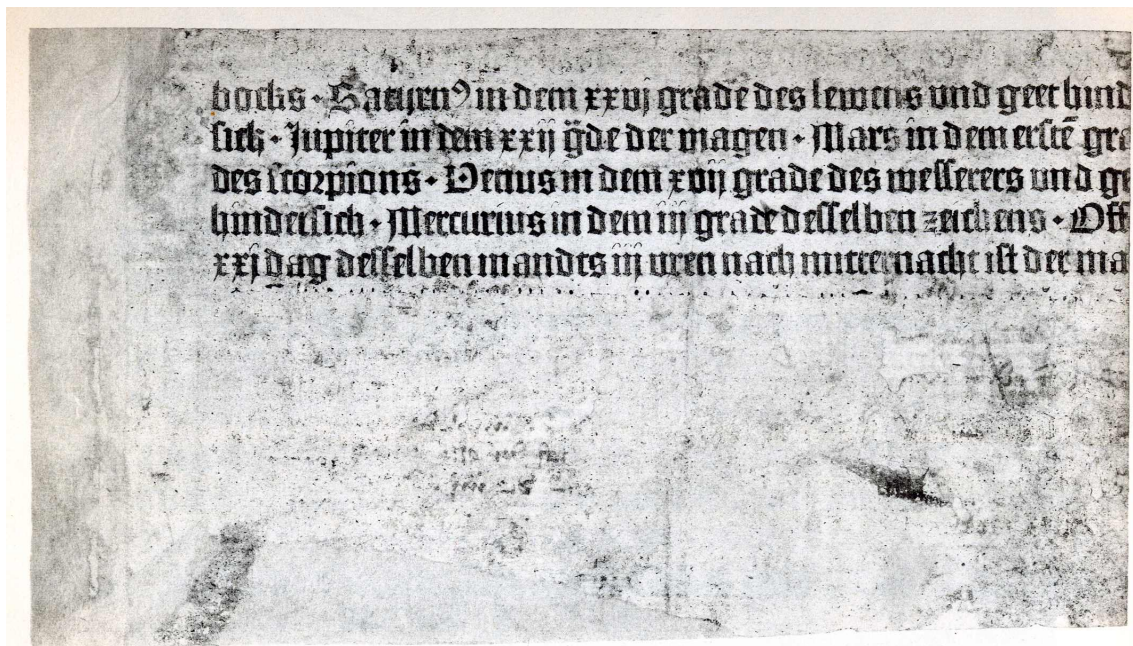 bocks · Saturnꝰ in dem xxvj grade des lewens vnd geet hind
sich · Jupiter in dem xxij g̈de der magen · Mars in dem erstē gra
des scorpions · Venus in dem xvij grade des wesserers vnd ge
hindersich · Mercurius in dem iij grade desselben zeichens · Off
xxj dag desselben mandts iij vren nach mitternacht ist der ma